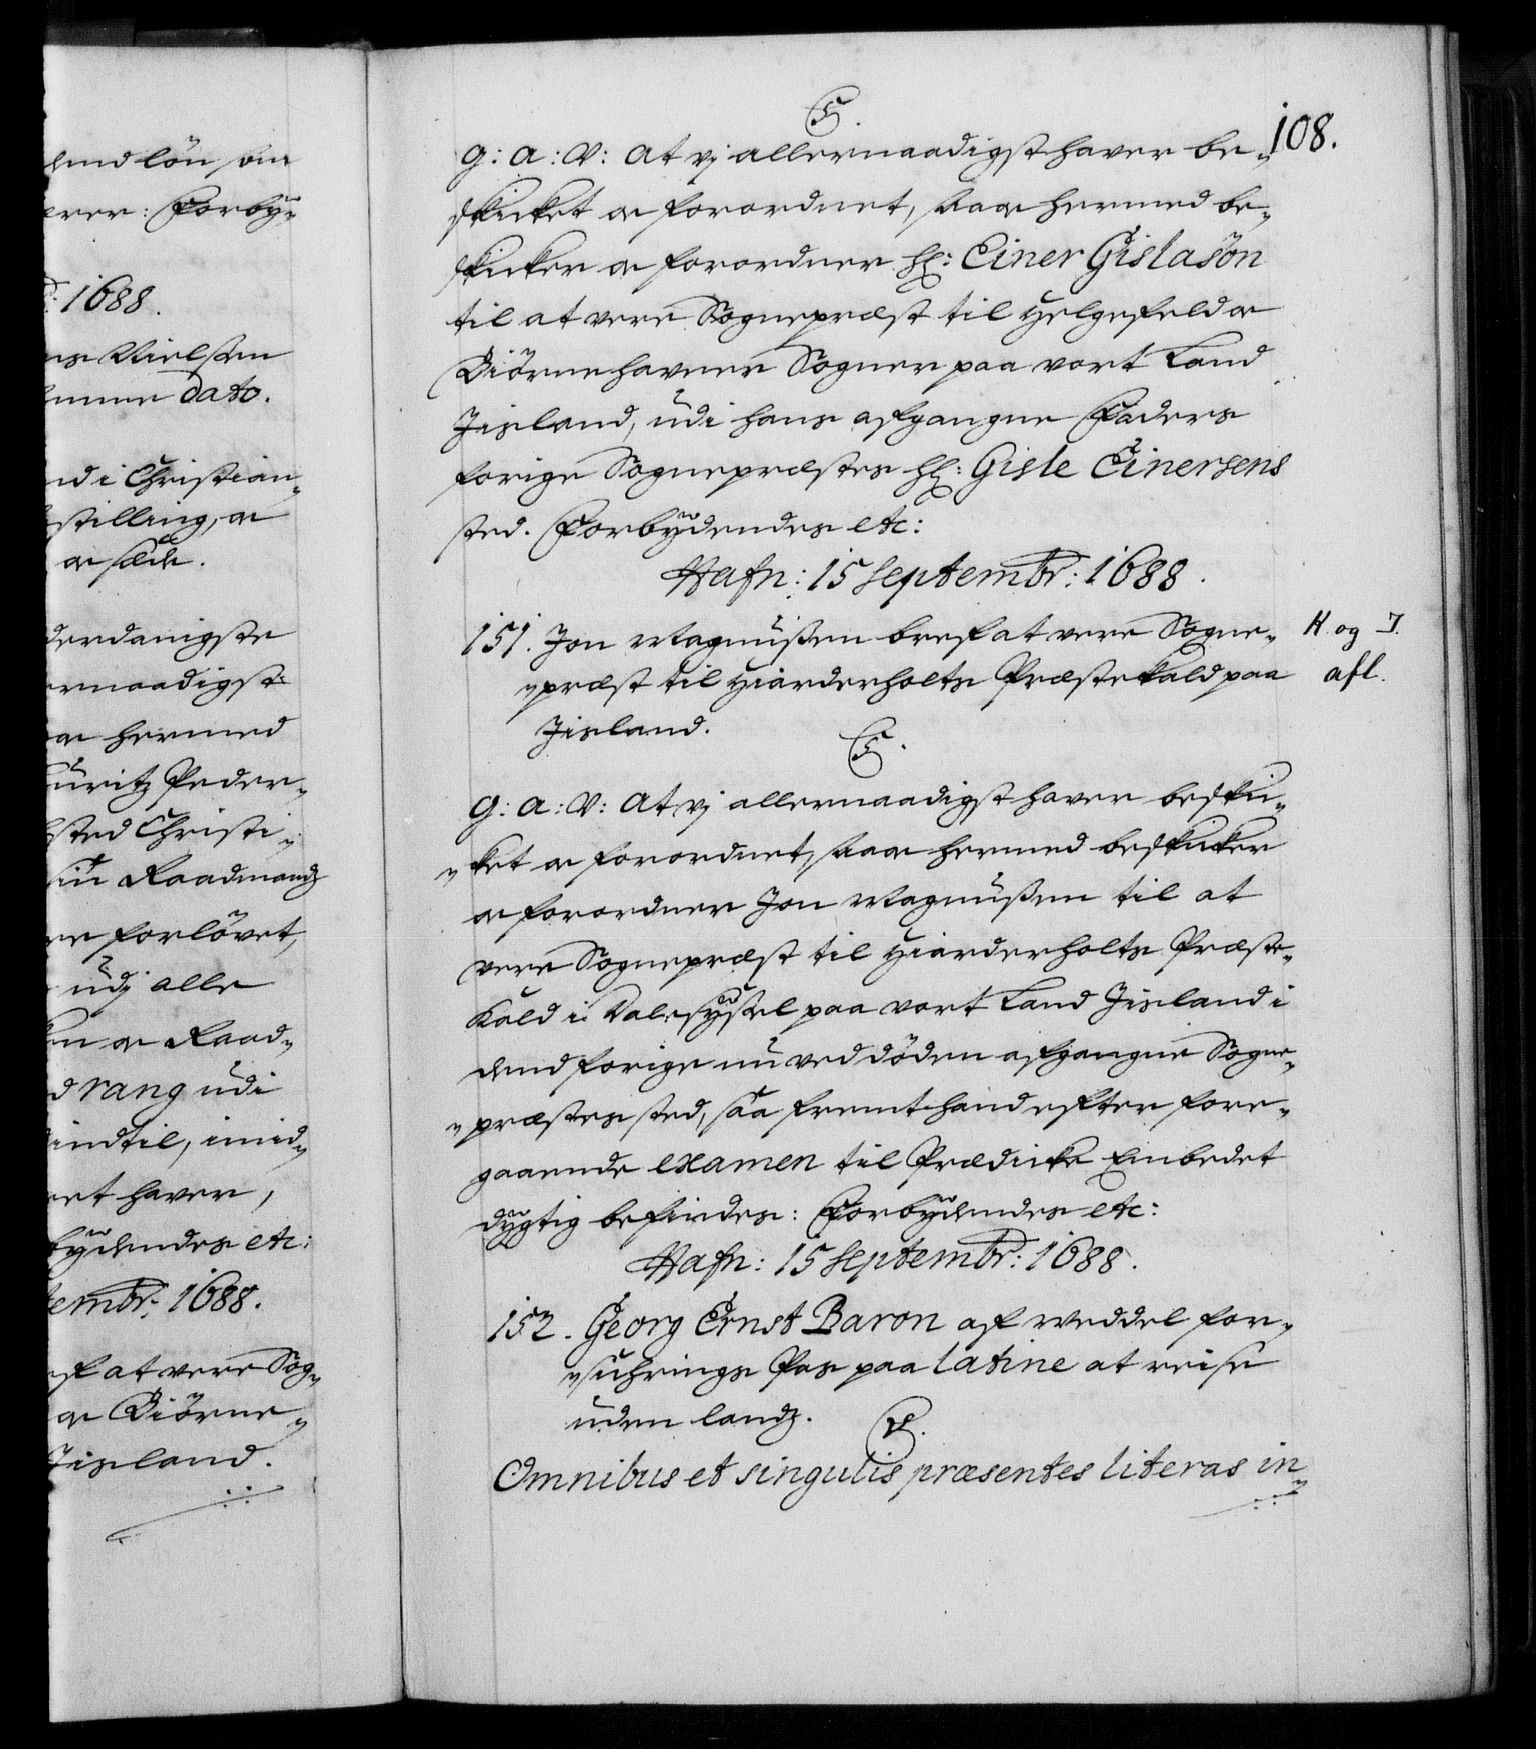 dend lön som
erer: Forby-
1688.
ns Nielsen
samme dato.
nd i Christian-
stilling, oc
oc skik.
derdanigste
ernaadigst
oc hermed
uritz Peder-
sted Christi-
Raadmands
re forlövet,
udj alle
en oc Raad-
d rang udi
indtil, imid-
et haver,
bydendes etc:
tembr: 1688.
ef at vere Sog-
oc Biörne-
Jisland.
108.
C5.
G: A: V: At vj allernaadigst haver be-
skicket oc forordnet, saa oc hermed be-
skicker oc forordner Hr: Einer Gislasön
til at vere Sognepræst til Helgefeld oc
Biörnehavner Sogner paa vort Land
Jisland, udi hans afgangne Faders
forige Sognepræstes Hr: Gisle Einersens
sted. Forbydendes etc:
Hafn: 15 Septembr: 1688.
151. Jon Magnussen bref at vere Sogne-
præst til Hiarderholts Præstekald paa
Jisland.
H. og I.
afl.
C5.
G: A: V: At vj allernaadigst haver beski-
cket oc forordnet, saa oc hermed beskicker
oc forordner Jon Magnussen til at
vere Sognepræst til Hiarderholts Præste-
Kald i Dalesyssel paa vort Land Jisland i
dend forige nu ved döden afgangne Sogne-
præstes sted, saa fremt hand efter fore-
gaaende examen til Prædicke Embedet
dygtig befindes: Forbydendes etc:
Hafn: 15 Septembr: 1688.
152. Georg Ernst Baron af Weddel for-
suhrings Pas paa latine at reise
uden lands.
Omnibus et singulis præsentes literas in-